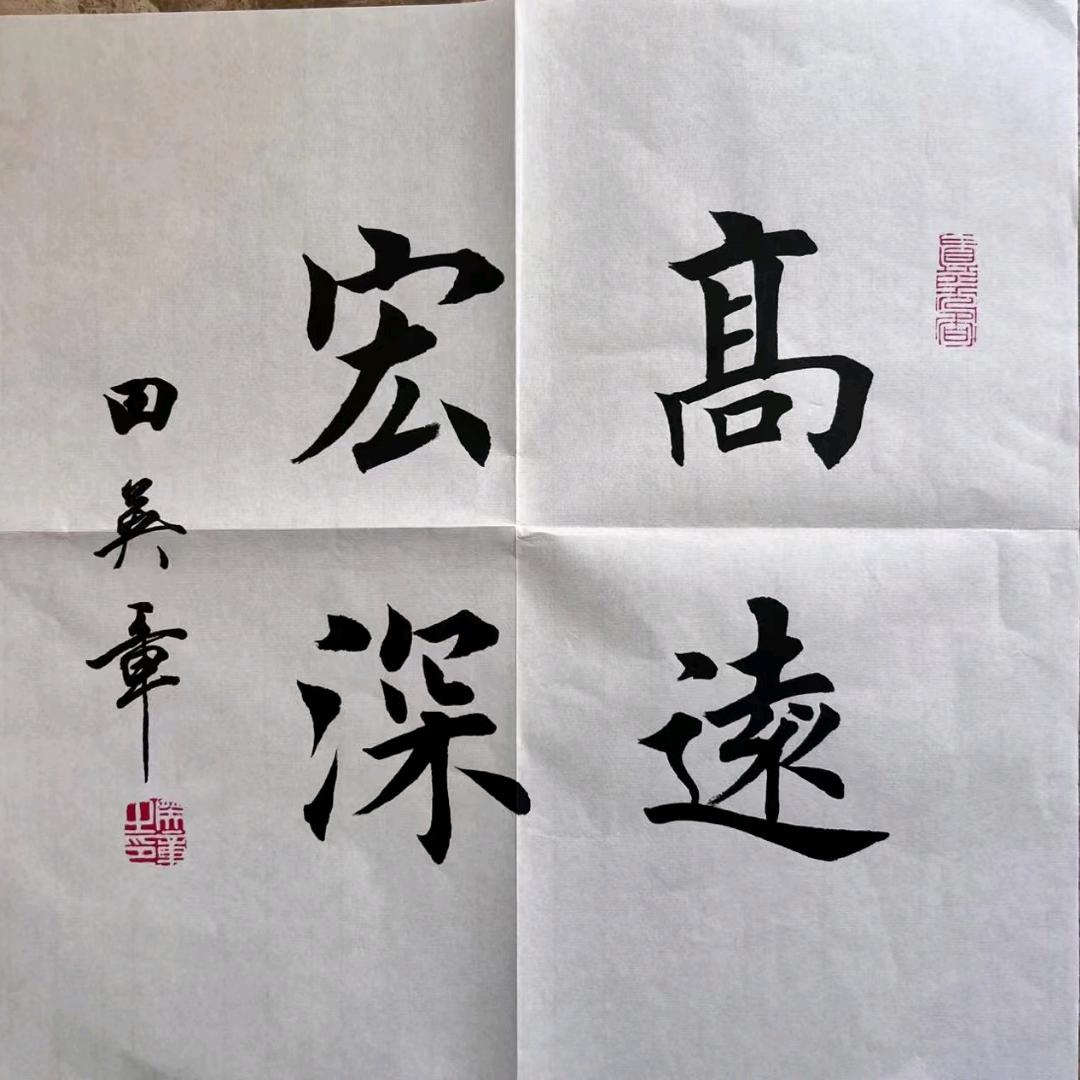 髙遠
宏深
田英章